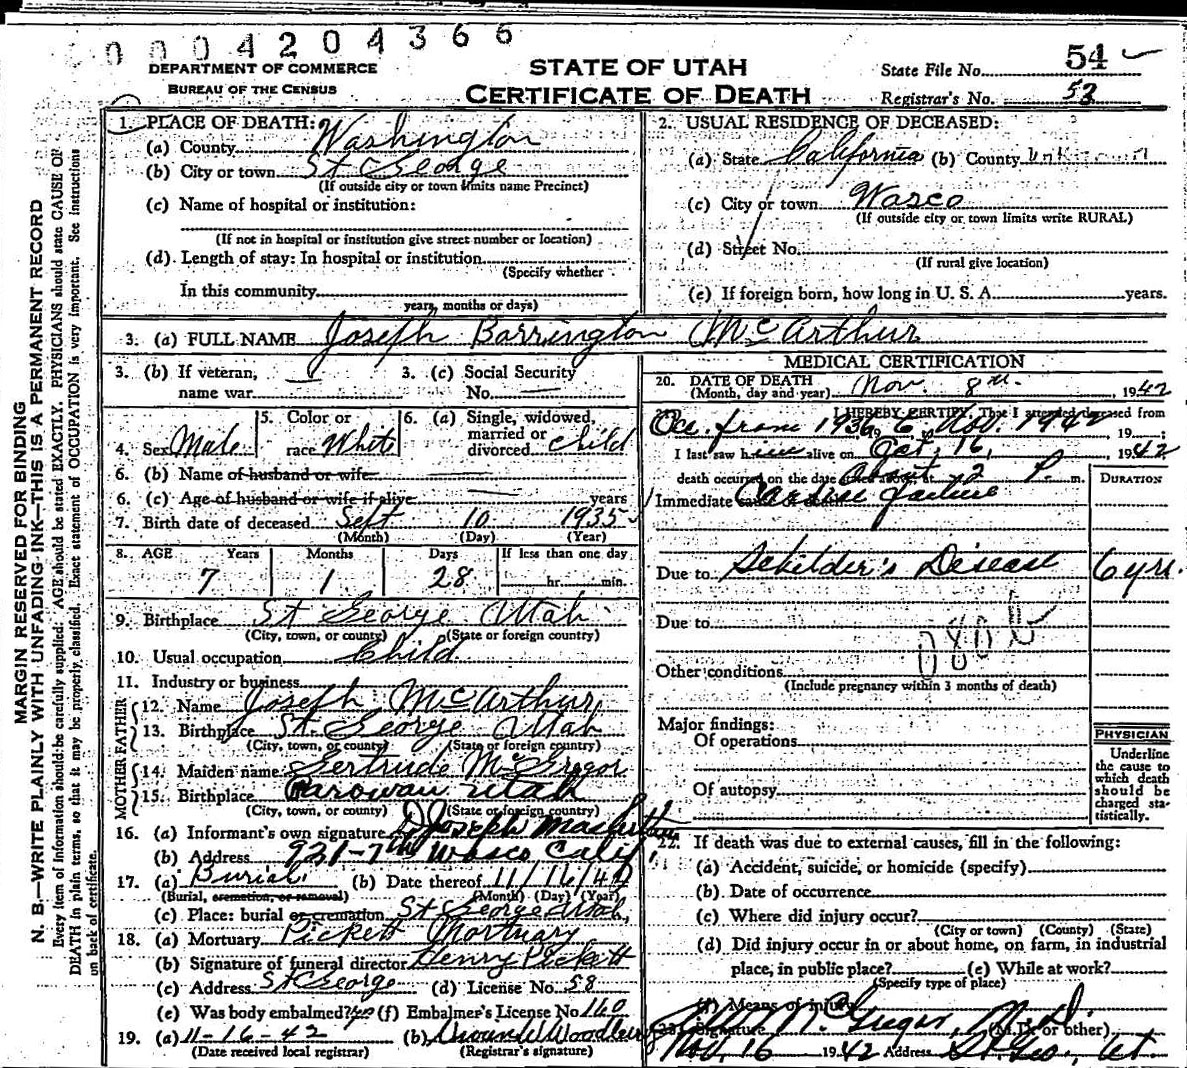 0004204366
DEPARTMENT OF COMMERCE
BUREAU OF THE CENSUS
STATE OF UTAH
CERTIFICATE OF DEATH
State File No. 54
Registrar's No. 53
MARGIN RESERVED FOR BINDING
N. B.—WRITE PLAINLY WITH UNFADING INK—THIS IS A PERMANENT RECORD
Every item of information should be carefully supplied. AGE should be stated EXACTLY. PHYSICIANS should state CAUSE OF
DEATH in plain terms, so that it may be properly classified. Exact statement of OCCUPATION is very important. See instructions
on back of certificate.
1. PLACE OF DEATH:
(a) County Washington
(b) City or town St George
(If outside city or town limits name Precinct)
(c) Name of hospital or institution:
(If not in hospital or institution give street number or location)
(d) Length of stay: In hospital or institution
(Specify whether
In this community
years, months or days)
2. USUAL RESIDENCE OF DECEASED:
(a) State California (b) County
(c) City or town Wasco
(If outside city or town limits write RURAL)
(d) Street No.
(If rural give location)
(e) If foreign born, how long in U. S. A. years.
3. (a) FULL NAME Joseph Barrington McArthur
3. (b) If veteran, name war
3. (c) Social Security No.
4. Sex Male
5. Color or race White
6. (a) Single, widowed, married or divorced child
6. (b) Name of husband or wife
6. (c) Age of husband or wife if alive years
7. Birth date of deceased Sept 10 1935
(Month) (Day) (Year)
8. AGE Years Months Days If less than one day
7 1 28 hr. min.
9. Birthplace St George Utah
(City, town, or county) (State or foreign country)
10. Usual occupation Child
11. Industry or business
FATHER
12. Name Joseph McArthur
13. Birthplace St. George Utah
(City, town, or county) (State or foreign country)
MOTHER
14. Maiden name Gertrude McGregor
15. Birthplace Parowan Utah
(City, town, or county) (State or foreign country)
16. (a) Informant's own signature Joseph MacArthur
(b) Address 931-7th Wasco Calif,
17. (a) Burial (b) Date thereof 11/16/42
(Burial, cremation, or removal) (Month) (Day) (Year)
(c) Place: burial or cremation St George Utah,
18. (a) Mortuary Pickett Mortuary
(b) Signature of funeral director Henry Pickett
(c) Address St George (d) License No. 58
(e) Was body embalmed? yes (f) Embalmer's License No. 160
19. (a) 11-16-42 (b)
(Date received local registrar) (Registrar's signature)
MEDICAL CERTIFICATION
20. DATE OF DEATH Nov. 8th. , 1942
(Month, day and year)
I HEREBY CERTIFY, That I attended deceased from
Occ. from 1936 to Nov. 1942, 19 ;
I last saw him alive on Oct, 16, , 1942
death occurred on the date stated above at About 2 P. m.
DURATION
Immediate cause of death Cardiac failure
Due to Schilder's Disease 6 yrs.
Due to
Other conditions
(Include pregnancy within 3 months of death)
Major findings:
Of operations
Of autopsy
PHYSICIAN
Underline
the cause to
which death
should be
charged sta-
tistically.
22. If death was due to external causes, fill in the following:
(a) Accident, suicide, or homicide (specify)
(b) Date of occurrence
(c) Where did injury occur?
(City or town) (County) (State)
(d) Did injury occur in or about home, on farm, in industrial
place, in public place? (e) While at work?
(Specify type of place)
(f) Means of injury
23. Signature McGregor, M.D. (M.D. or other)
Nov. 16 1942 Address St. Geo., Ut.